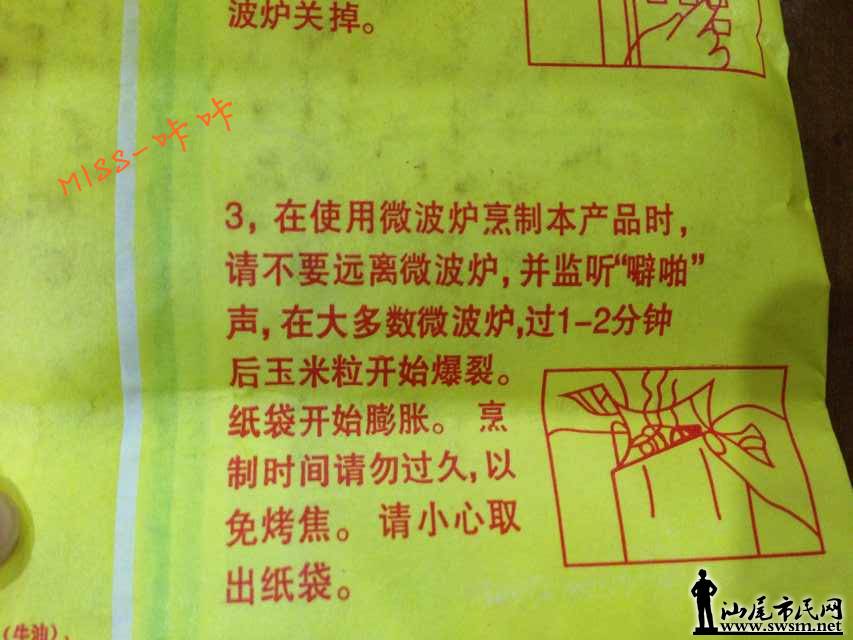 波炉关掉。
MISS-咔咔
3，在使用微波炉烹制本产品时，
请不要远离微波炉，并监听“噼啪”
声，在大多数微波炉，过1-2分钟
后玉米粒开始爆裂。
纸袋开始膨胀。 烹
制时间请勿过久，以
免烤焦。 请小心取
出纸袋。
（牛油）、
汕尾市民网
www.swsm.net